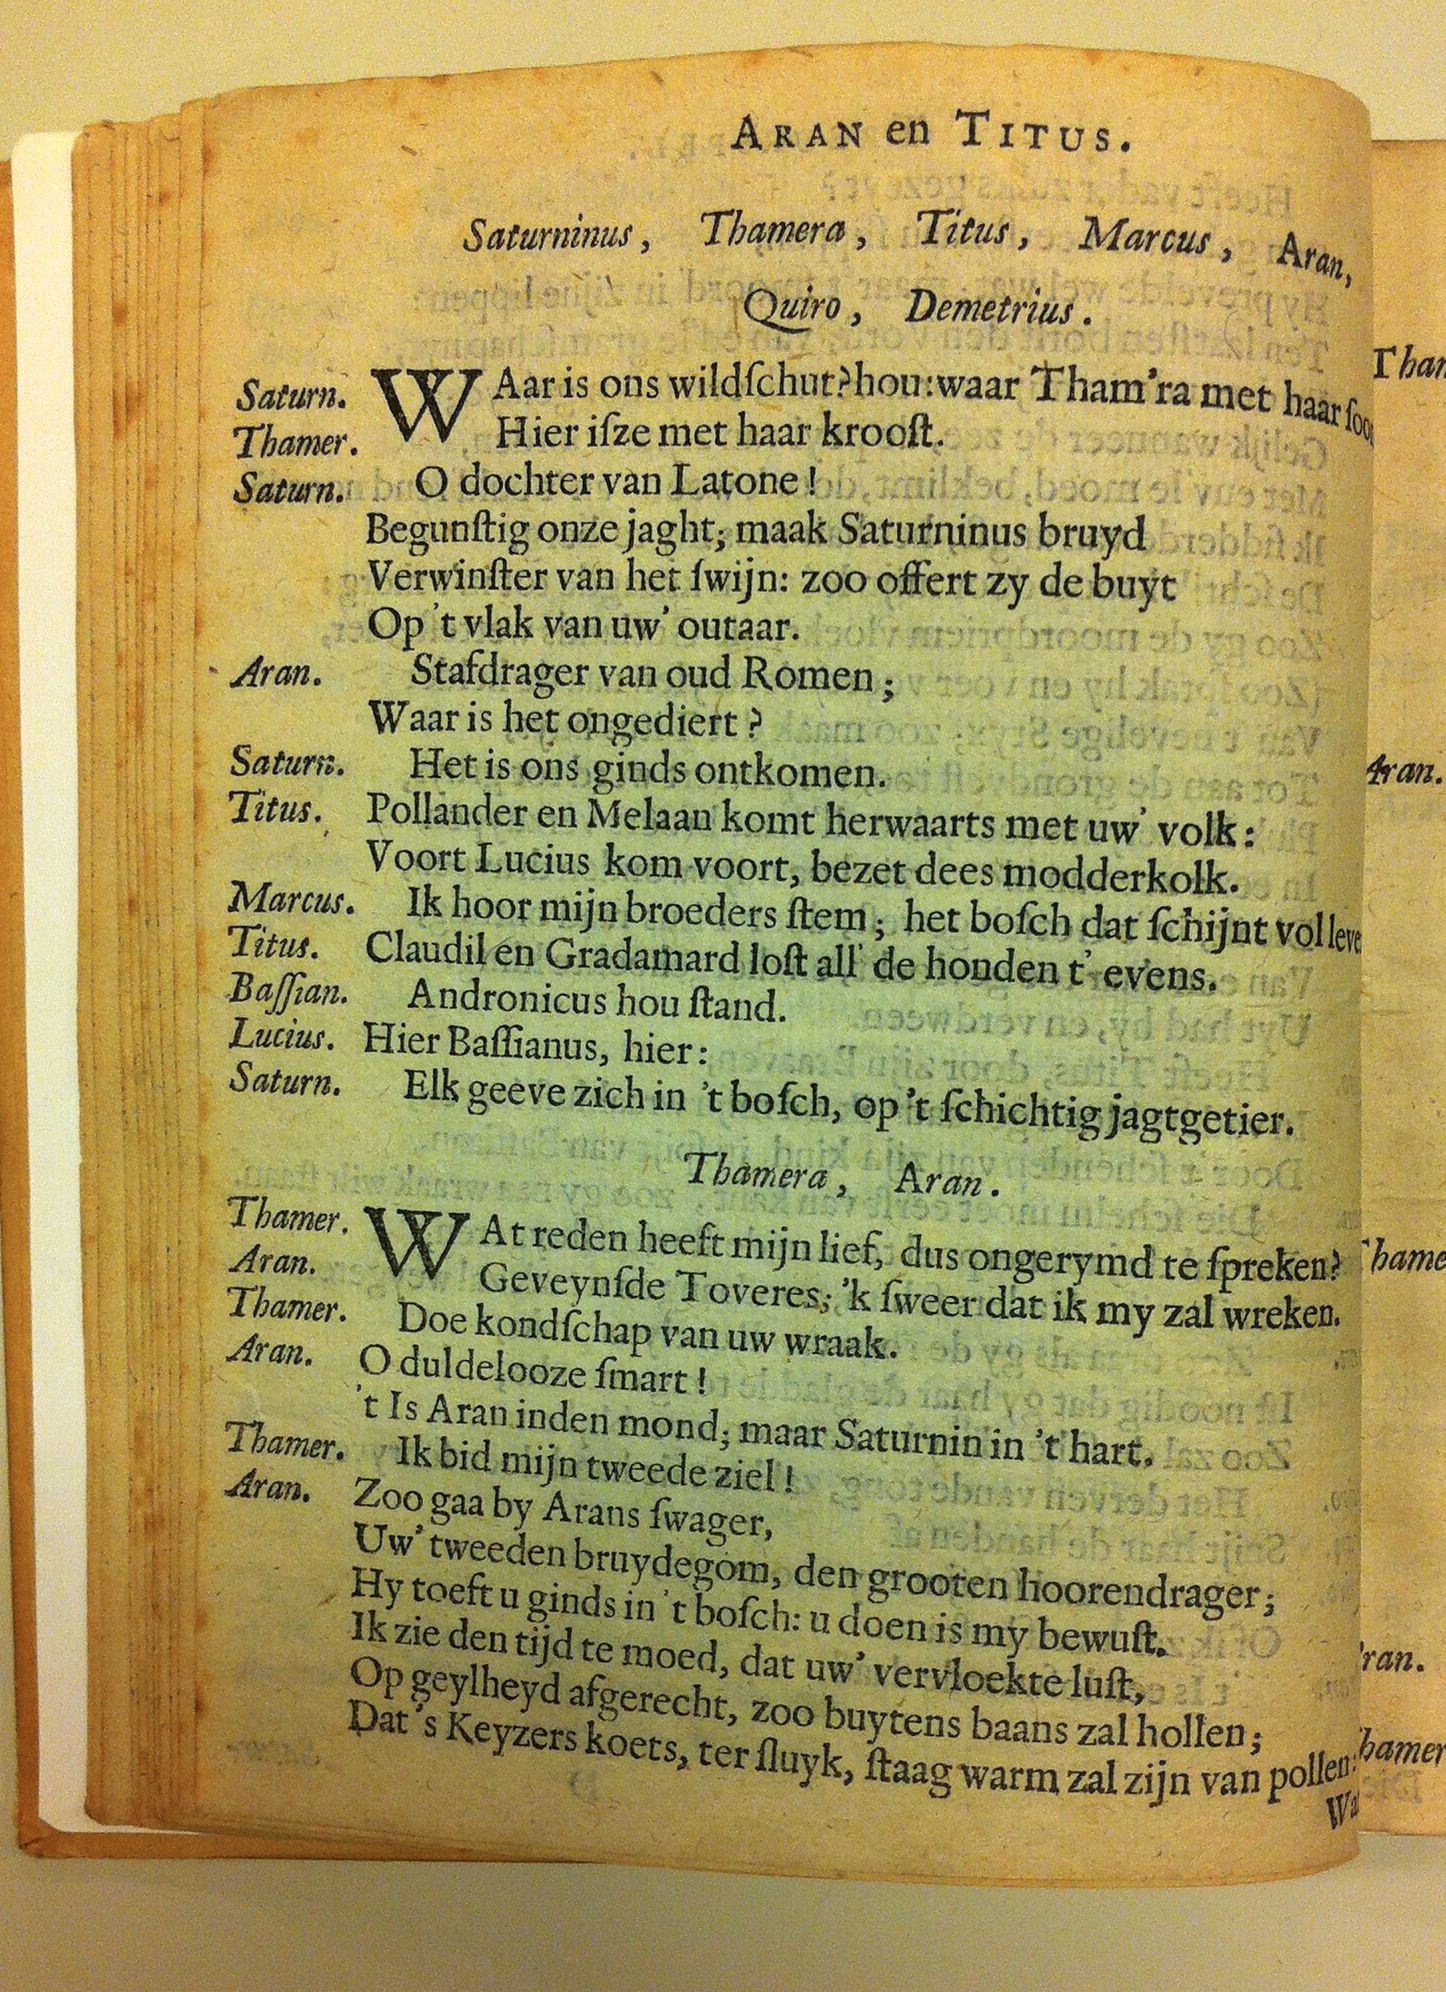 ARAN en TITUS.
Saturninus, Thamera, Titus, Marcus, Aran,
Quiro, Demetrius.
Saturn. WAar is ons wildſchut? hou: waar Tham'ra met haar
Thamer. Hier iſze met haar krooſt.
Saturn. O dochter van Latone!
Begunſtig onze jaght; maak Saturninus bruyd
Verwinſter van het ſwijn: zoo offert zy de buyt
Op 't vlak van uw' outaar.
Aran. Stafdrager van oud Romen;
Waar is het ongediert?
Saturn. Het is ons ginds ontkomen.
Titus. Pollander en Melaan komt herwaarts met uw' volk:
Voort Lucius kom voort, bezet dees modderkolk.
Marcus. Ik hoor mijn broeders ſtem; het boſch dat ſchijnt vol
Titus. Claudil en Gradamard loſt all' de honden t' evens.
Baſſian. Andronicus hou ſtand.
Lucius. Hier Baſſianus, hier:
Saturn. Elk geeve zich in 't boſch, op 't ſchichtig jagtgetier.
Thamera, Aran.
Thamer. WAt reden heeft mijn lief, dus ongerymd te ſpreken?
Aran. Geveynſde Toveres; 'k ſweer dat ik my zal wreken.
Thamer. Doe kondſchap van uw wraak.
Aran. O duldelooze ſmart!
't Is Aran inden mond; maar Saturnin in 't hart.
Thamer. Ik bid mijn tweede ziel!
Aran. Zoo gaa by Arans ſwager,
Uw' tweeden bruydegom, den grooten hoorendrager;
Hy toeft u ginds in 't boſch: u doen is my bewuſt.
Ik zie den tijd te moed, dat uw' vervloekte luſt,
Op geylheyd afgerecht, zoo buytens baans zal hollen;
Dat 's Keyzers koets, ter ſluyk, ſtaag warm zal zijn van pollen:
Aran.